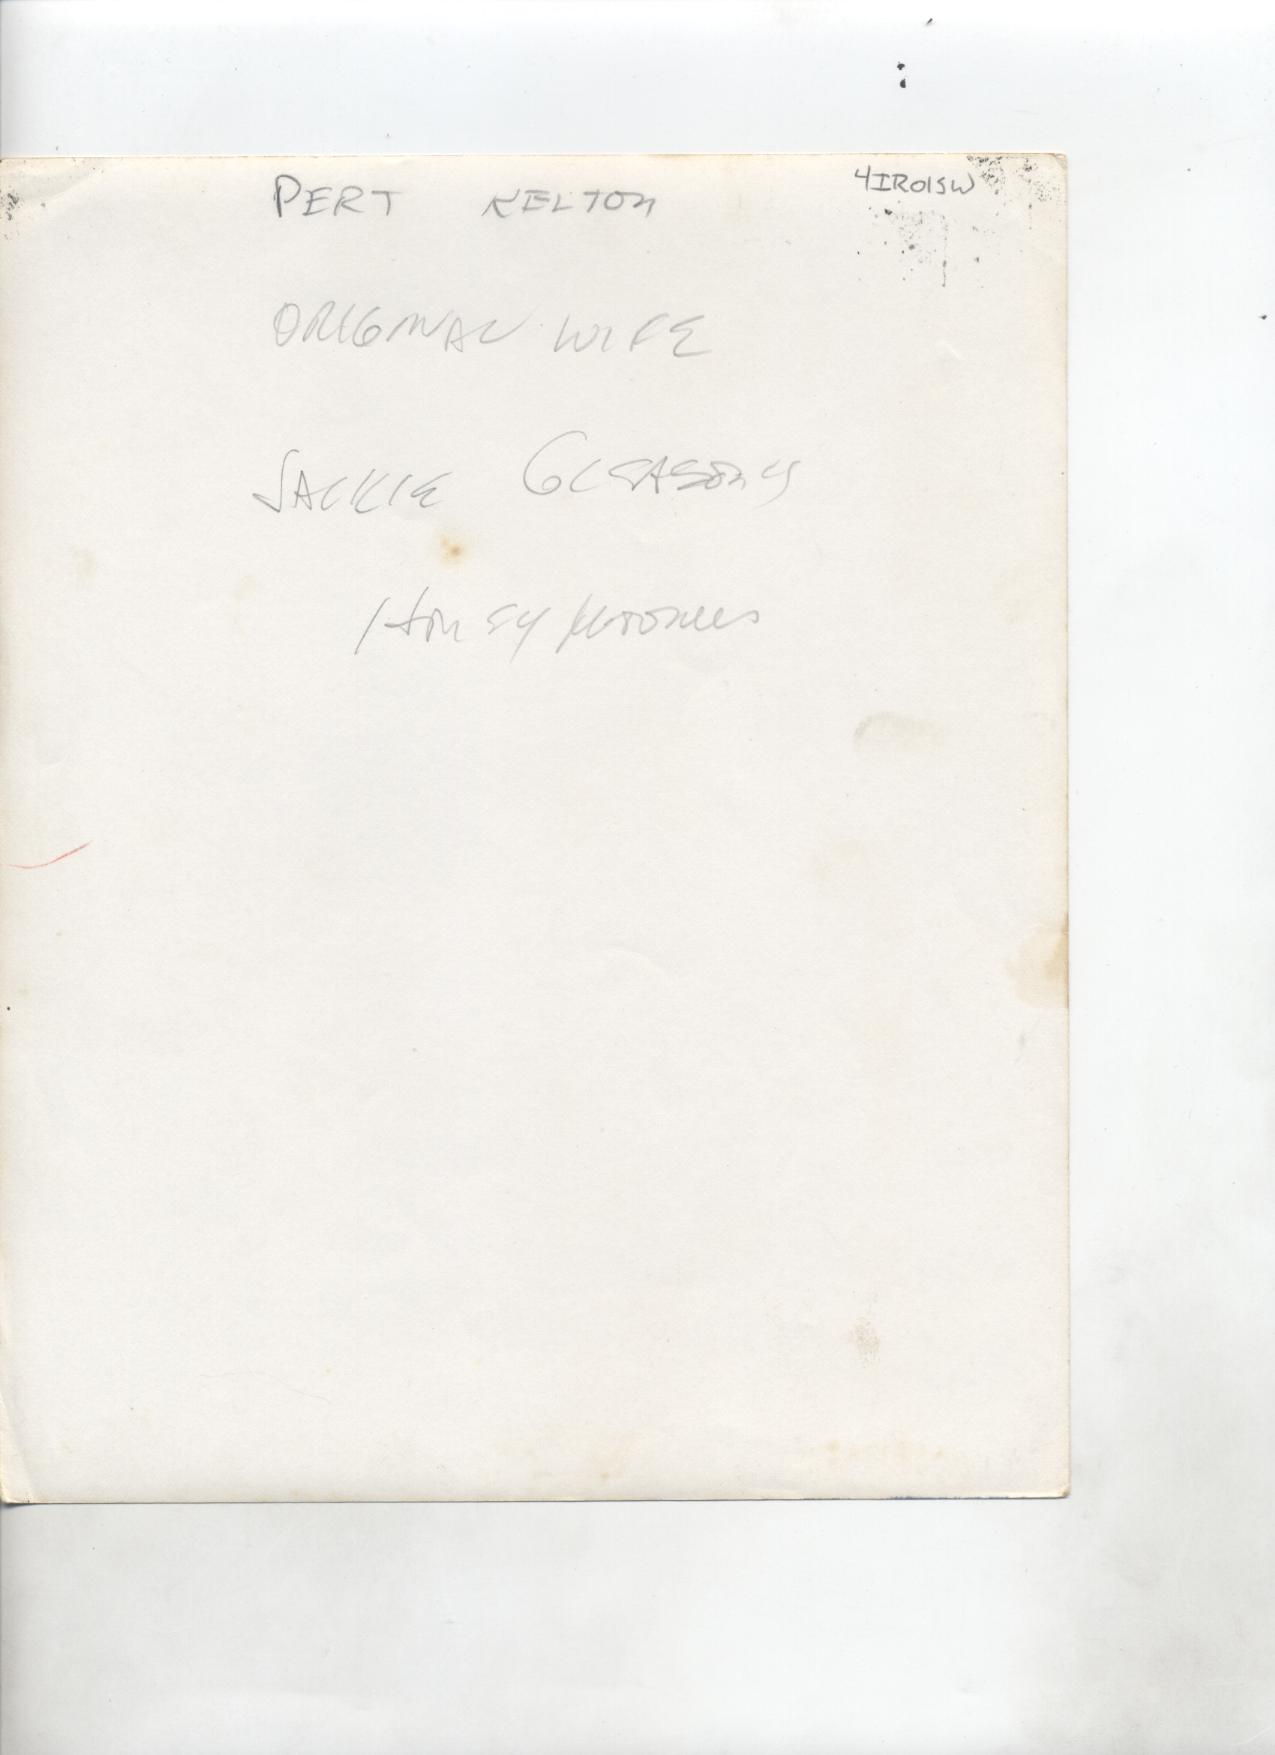 PERT KELTON
4IR015W
ORIGINAL WIFE
JACKIE GLEASONS
HONEYMOONERS